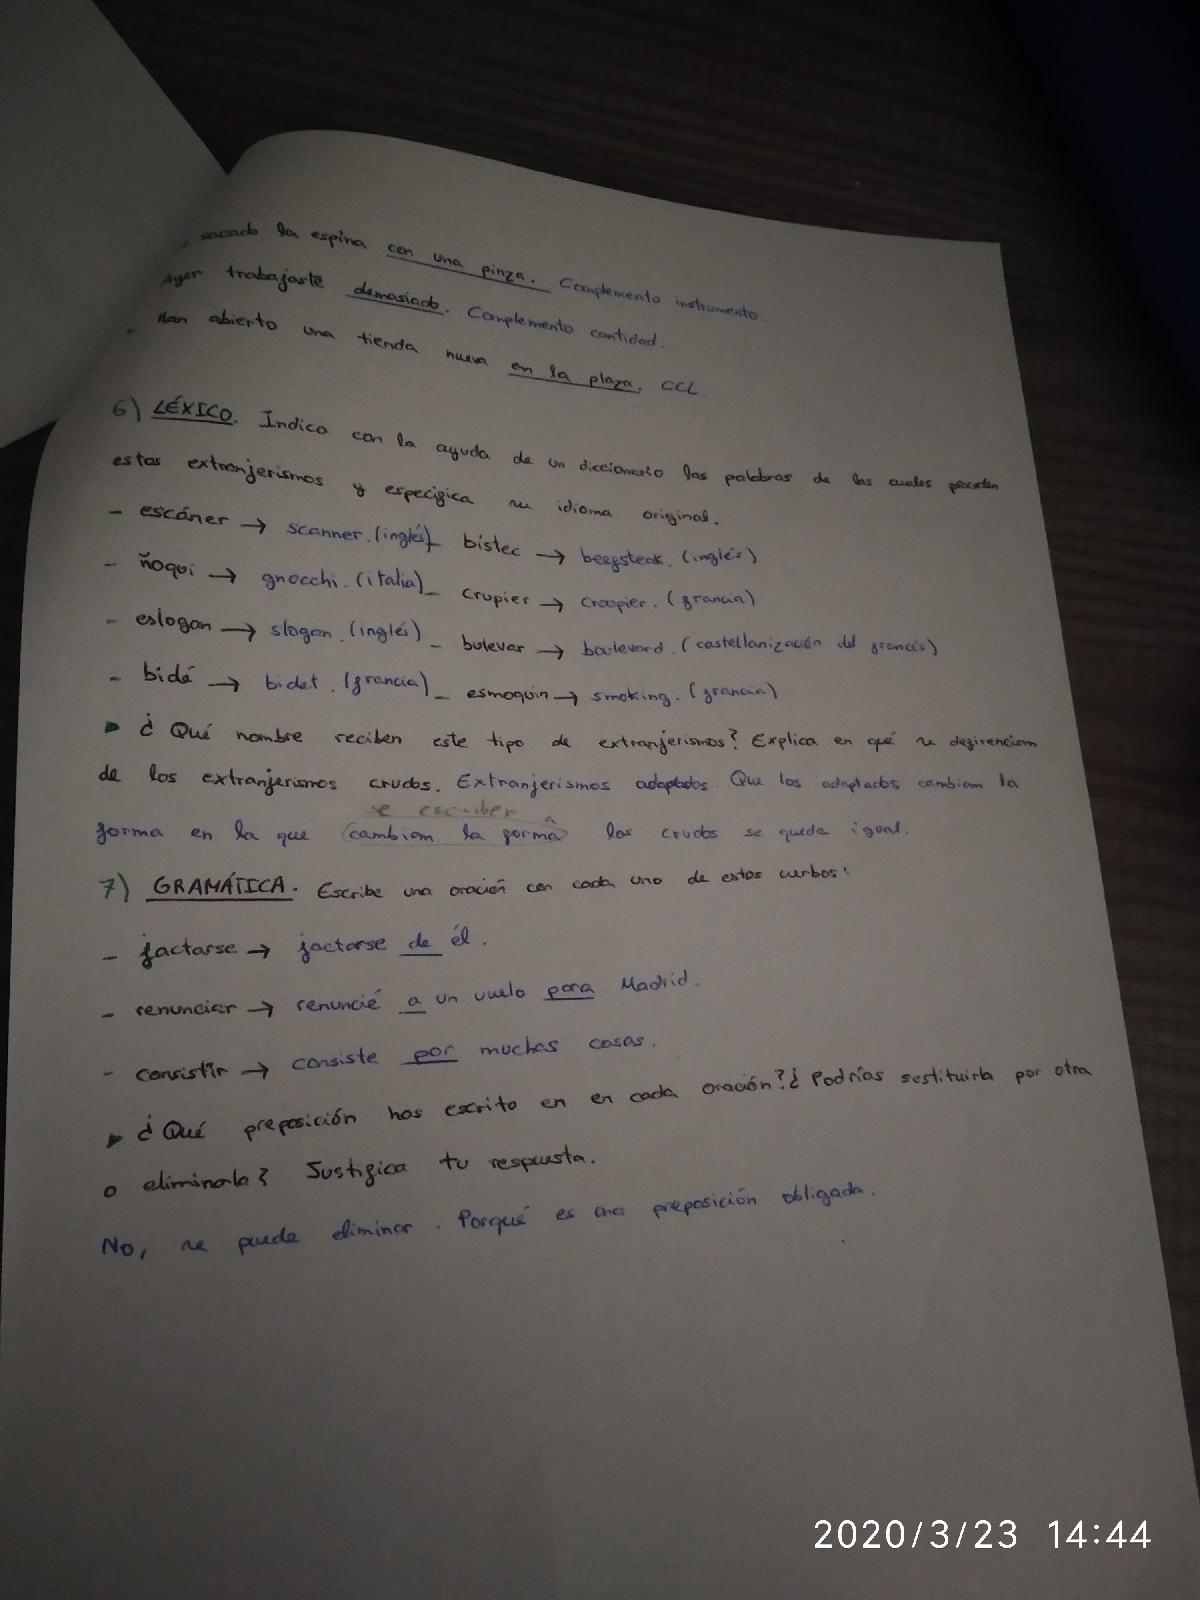 sacado la espina con una pinza. Complemento instrumento.
Ayer trabajaste demasiado. Complemento cantidad.
Han abierto una tienda nueva en la plaza. CCL
6) LÉXICO. Indica con la ayuda de un diccionario las palabras de las cuales proceden
estos extranjerismos y especifica su idioma original.
- escáner → scanner. (inglés) - bistec → beefsteak. (inglés)
- ñoqui → gnocchi. (italia) - crupier → croupier. (francia)
- eslogan → slogan. (inglés) - bulevar → boulevard. (castellanización del francés)
- bidé → bidet. (francia) - esmoquin → smoking. (francia)
▸ ¿Qué nombre reciben este tipo de extranjerismos? Explica en qué se difirencian
de los extranjerismos crudos. Extranjerismos adaptados. Que los adaptados cambian la
se escriben
forma en la que (cambian la forma) los crudos se queda igual.
7) GRAMÁTICA. Escribe una oración con cada uno de estos verbos:
- jactarse → jactarse de él.
- renunciar → renuncié a un vuelo para Madrid.
- consistir → consiste por muchas cosas.
▸ ¿Qué preposición has escrito en en cada oración? ¿Podrías sustituirla por otra
o eliminarla? Justifica tu respuesta.
No, se puede eliminar. Porqué es una preposición obligada.
2020/3/23 14:44